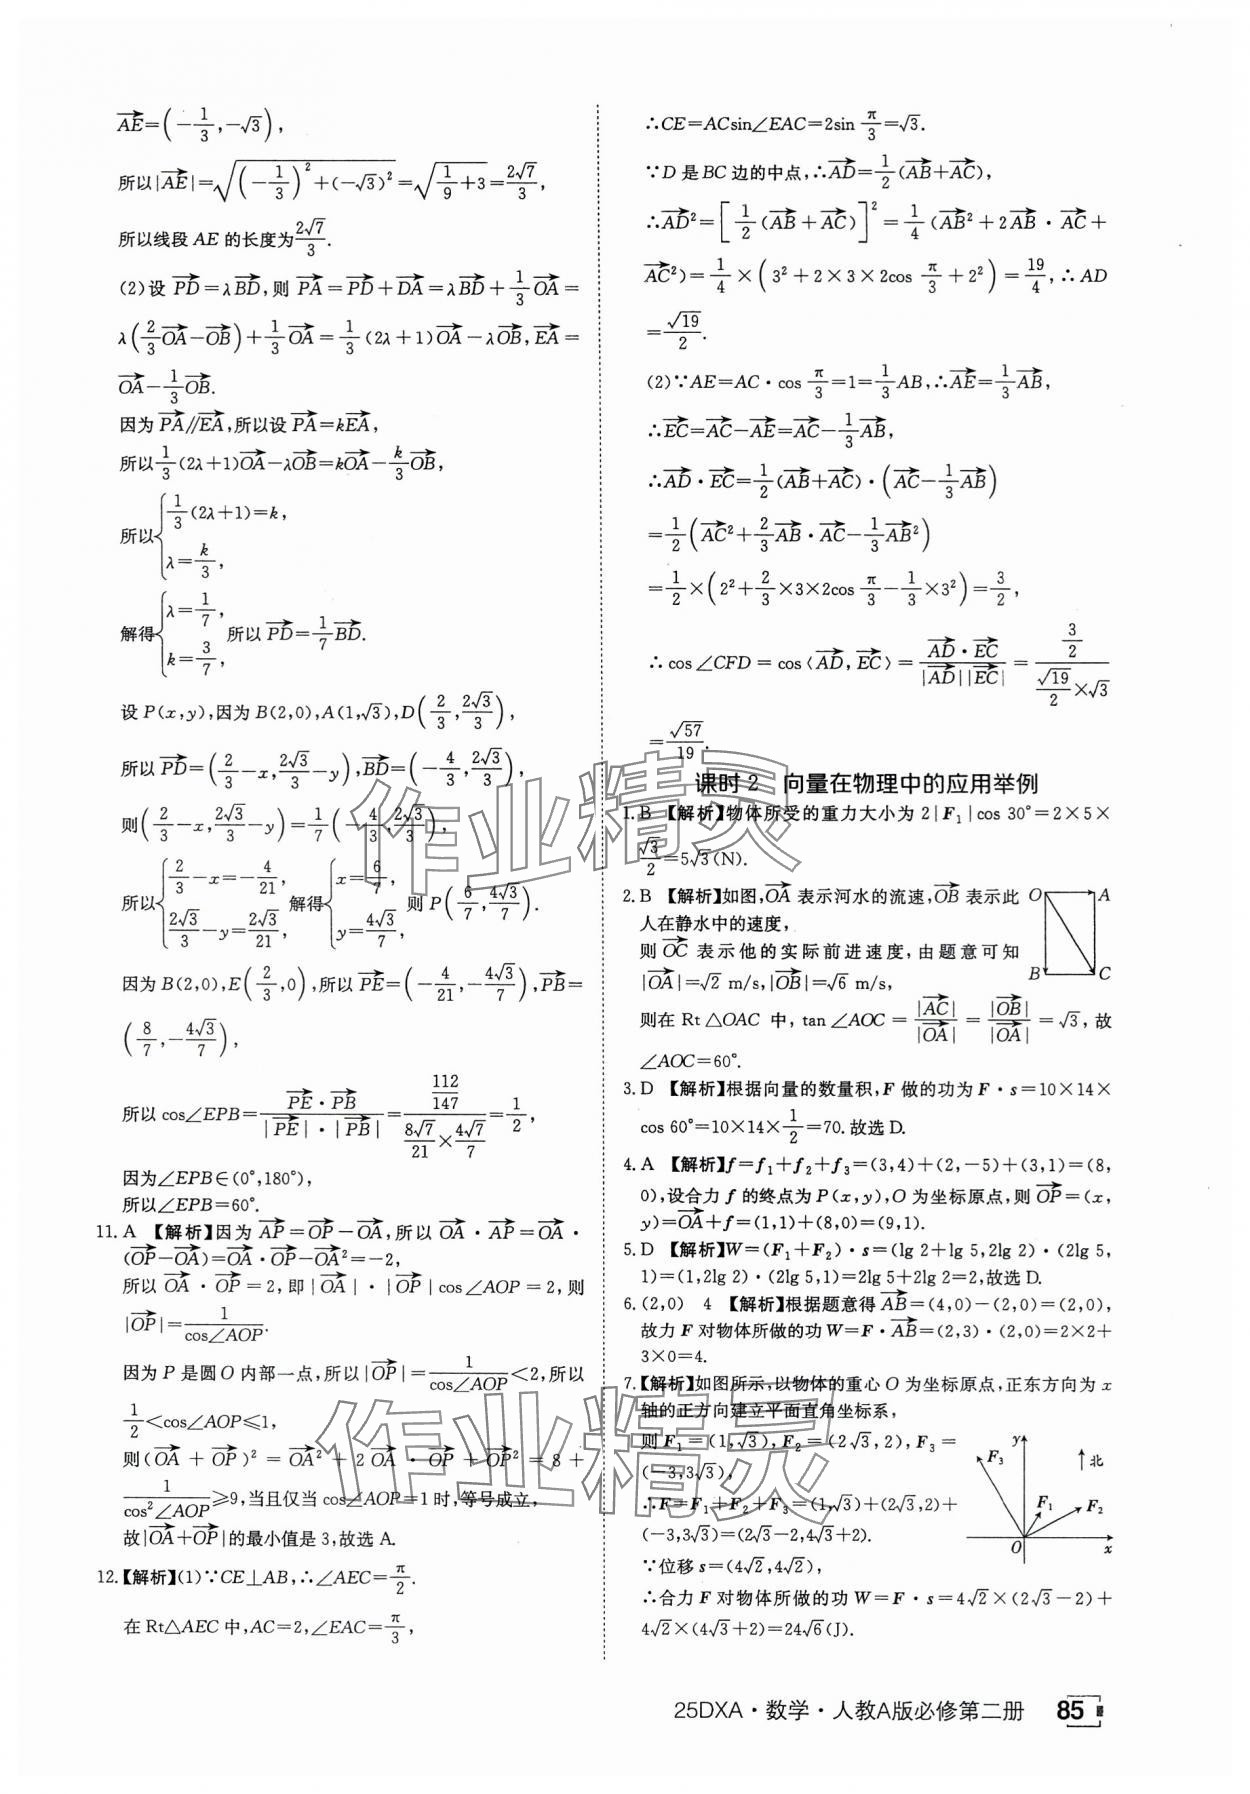 AE=(-1/3,-√3),
所以|AE|=√((-1/3)²+(-√3)²)=√(1/9+3)=2√7/3,
所以线段 AE 的长度为2√7/3.
(2)设 PD=λBD,则 PA=PD+DA=λBD+1/3 OA=
λ(2/3 OA-OB)+1/3 OA=1/3(2λ+1)OA-λOB,EA=
OA-1/3 OB.
因为 PA∥EA,所以设 PA=kEA,
所以1/3(2λ+1)OA-λOB=kOA-k/3 OB,
所以{1/3(2λ+1)=k, λ=k/3,
解得{λ=1/7, k=3/7, 所以 PD=1/7 BD.
设 P(x,y),因为 B(2,0),A(1,√3),D(2/3,2√3/3),
所以 PD=(2/3-x,2√3/3-y),BD=(-4/3,2√3/3),
则(2/3-x,2√3/3-y)=1/7(-4/3,2√3/3),
所以{2/3-x=-4/21, 2√3/3-y=2√3/21, 解得{x=6/7, y=4√3/7, 则 P(6/7,4√3/7).
因为 B(2,0),E(2/3,0),所以 PE=(-4/21,-4√3/7),PB=
(8/7,-4√3/7),
所以 cos∠EPB=PE·PB/|PE|·|PB|=(112/147)/(8√7/21×4√7/7)=1/2,
因为∠EPB∈(0°,180°),
所以∠EPB=60°.
11. A 【解析】因为 AP=OP-OA,所以 OA·AP=OA·
(OP-OA)=OA·OP-OA²=-2,
所以 OA·OP=2,即|OA|·|OP|cos∠AOP=2,则
|OP|=1/cos∠AOP.
因为 P 是圆 O 内部一点,所以|OP|=1/cos∠AOP<2,所以
1/2<cos∠AOP≤1,
则(OA+OP)²=OA²+2OA·OP+OP²=8+
1/cos²∠AOP≥9,当且仅当 cos∠AOP=1 时,等号成立,
故|OA+OP|的最小值是 3,故选 A.
12.【解析】(1)∵CE⊥AB,∴∠AEC=π/2.
在 Rt△AEC 中,AC=2,∠EAC=π/3,
∴CE=ACsin∠EAC=2sin π/3=√3.
∵D 是 BC 边的中点,∴AD=1/2(AB+AC),
∴AD²=[1/2(AB+AC)]²=1/4(AB²+2AB·AC+
AC²)=1/4×(3²+2×3×2cos π/3+2²)=19/4,∴AD
=√19/2.
(2)∵AE=AC·cos π/3=1=1/3 AB,∴AE=1/3 AB,
∴EC=AC-AE=AC-1/3 AB,
∴AD·EC=1/2(AB+AC)·(AC-1/3 AB)
=1/2(AC²+2/3 AB·AC-1/3 AB²)
=1/2×(2²+2/3×3×2cos π/3-1/3×3²)=3/2,
∴cos∠CFD=cos⟨AD,EC⟩=AD·EC/|AD||EC|=(3/2)/(√19/2×√3)
=√57/19.
课时 2 向量在物理中的应用举例
1. B 【解析】物体所受的重力大小为 2|F₁|cos 30°=2×5×
√3/2=5√3(N).
2. B 【解析】如图,OA 表示河水的流速,OB 表示此
人在静水中的速度,
则 OC 表示他的实际前进速度,由题意可知
|OA|=√2 m/s,|OB|=√6 m/s,
则在 Rt△OAC 中,tan∠AOC=|AC|/|OA|=|OB|/|OA|=√3,故
∠AOC=60°.
O A
B C
3. D 【解析】根据向量的数量积,F 做的功为 F·s=10×14×
cos 60°=10×14×1/2=70.故选 D.
4. A 【解析】f=f₁+f₂+f₃=(3,4)+(2,-5)+(3,1)=(8,
0),设合力 f 的终点为 P(x,y),O 为坐标原点,则 OP=(x,
y)=OA+f=(1,1)+(8,0)=(9,1).
5. D 【解析】W=(F₁+F₂)·s=(lg 2+lg 5,2lg 2)·(2lg 5,
1)=(1,2lg 2)·(2lg 5,1)=2lg 5+2lg 2=2,故选 D.
6. (2,0) 4 【解析】根据题意得 AB=(4,0)-(2,0)=(2,0),
故力 F 对物体所做的功 W=F·AB=(2,3)·(2,0)=2×2+
3×0=4.
7.【解析】如图所示,以物体的重心 O 为坐标原点,正东方向为 x
轴的正方向建立平面直角坐标系,
则 F₁=(1,√3),F₂=(2√3,2),F₃=
(-3,3√3),
∴F=F₁+F₂+F₃=(1,√3)+(2√3,2)+
(-3,3√3)=(2√3-2,4√3+2).
∵位移 s=(4√2,4√2),
∴合力 F 对物体所做的功 W=F·s=4√2×(2√3-2)+
4√2×(4√3+2)=24√6(J).
y
F₃
北
F₁
F₂
O
x
作业精灵
作业精灵
25DXA·数学·人教A版必修第二册 85